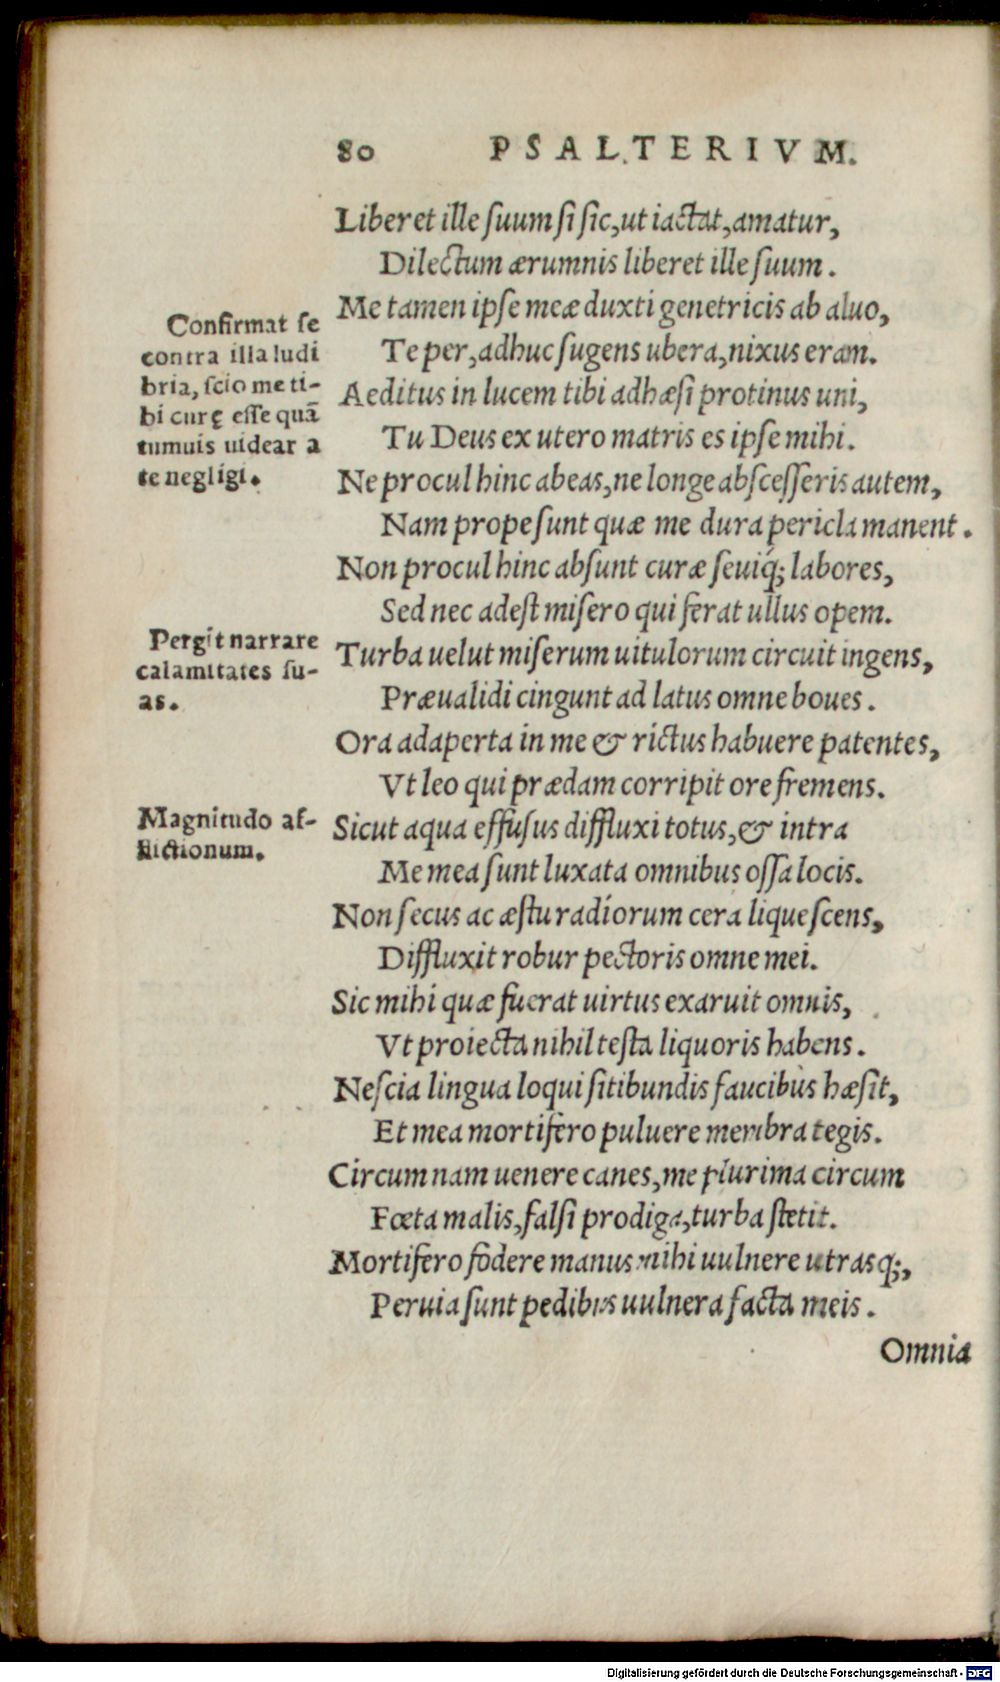 80 PSALTERIVM.
Liberet ille ſuum ſi ſic, ut iactat, amatur,
Dilectum ærumnis liberet ille ſuum.
Me tamen ipſe meæ duxti genetricis ab aluo,
Te per, adhuc ſugens ubera, nixus eram.
Aeditus in lucem tibi adhæſi protinus uni,
Tu Deus ex utero matris es ipſe mihi.
Ne procul hinc abeas, ne longe abſceſſeris autem,
Nam prope ſunt quæ me dura pericla manent.
Non procul hinc abſunt curæ ſeuiq́; labores,
Sed nec adeſt miſero qui ferat ullus opem.
Turba uelut miſerum uitulorum circuit ingens,
Præualidi cingunt ad latus omne boues.
Ora adaperta in me & rictus habuere patentes,
Vt leo qui prædam corripit ore fremens.
Sicut aqua effuſus diffluxi totus, & intra
Me mea ſunt luxata omnibus oſſa locis.
Non ſecus ac æſtu radiorum cera liqueſcens,
Diffluxit robur pectoris omne mei.
Sic mihi quæ fuerat uirtus exaruit omnis,
Vt proiecta nihil teſta liquoris habens.
Neſcia lingua loqui ſitibundis faucibus hæſit,
Et mea mortifero puluere membra tegis.
Circum nam uenere canes, me plurima circum
Fœta malis, falſi prodiga, turba ſtetit.
Mortifero fodere manus mihi uulnere utrasq;,
Peruia ſunt pedibus uulnera facta meis.
Omnia
Confirmat ſe
contra illa ludi
bria, ſcio me ti-
bi curę eſſe quā
tumuis uidear a
te negligi.
Pergit narrare
calamitates ſu-
as.
Magnitudo af-
flictionum.
Digitalisierung gefördert durch die Deutsche Forschungsgemeinschaft - DFG